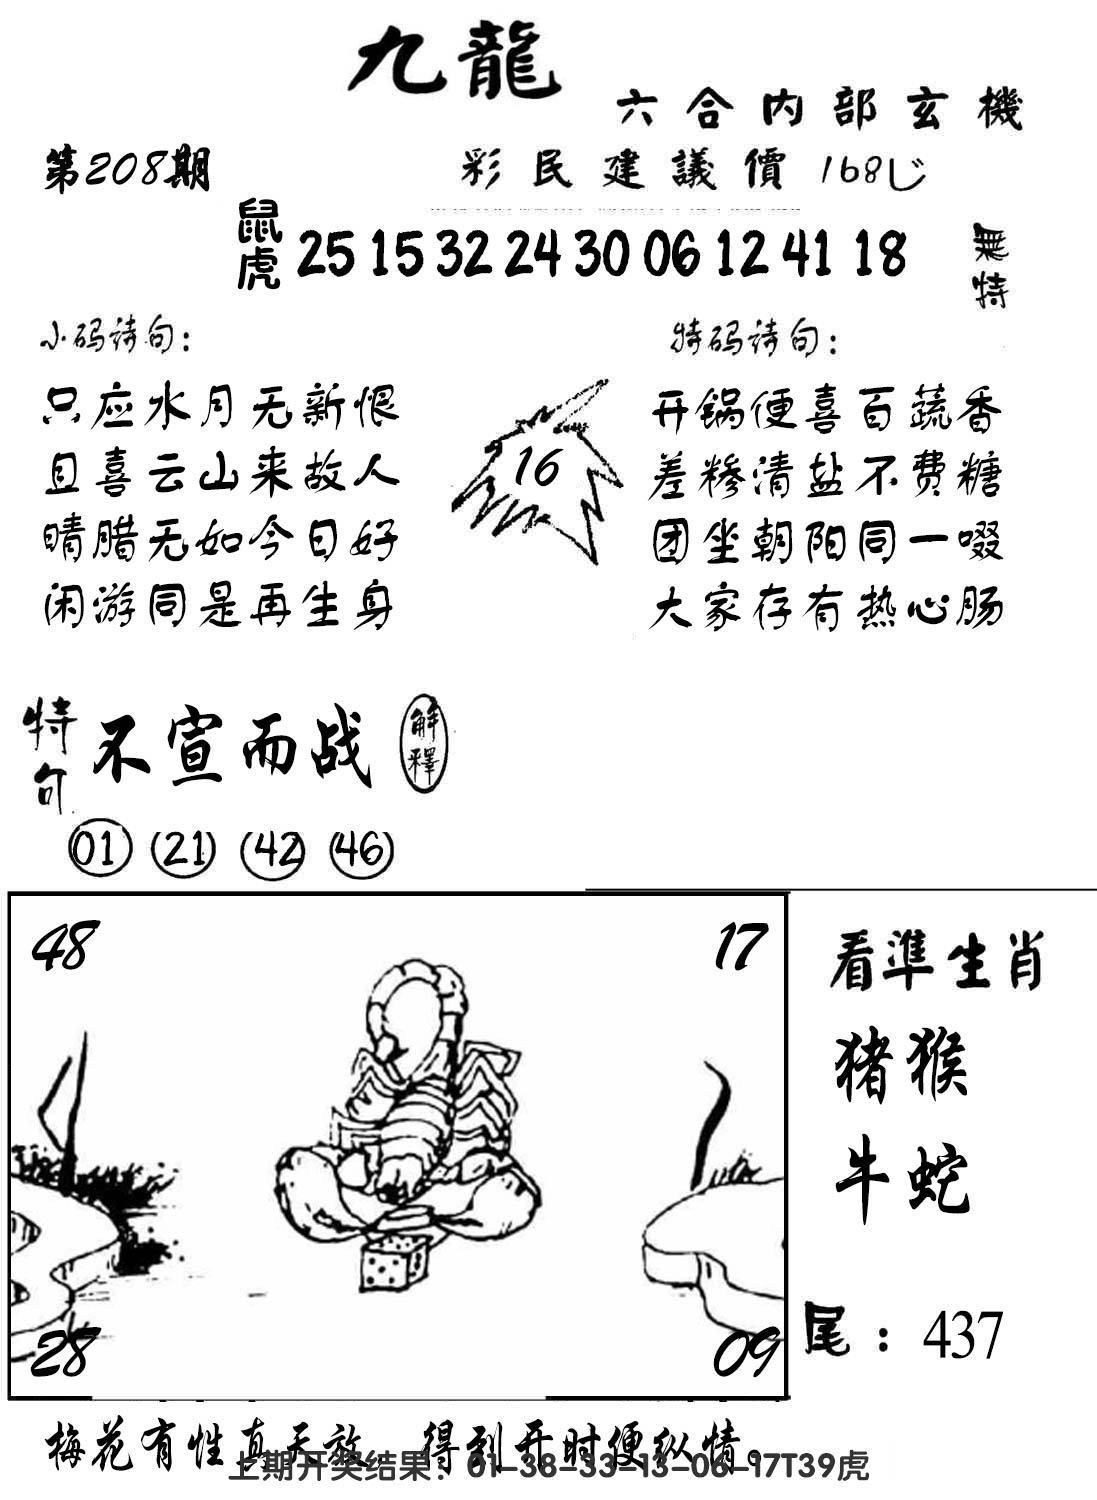 九龍
六合内部玄機
第208期
彩民建議價168
鼠虎 25 15 32 24 30 06 12 41 18 無特
小码诗句:
特码诗句:
只应水月无新恨
且喜云山来故人
晴腊无如今日好
闲游同是再生身
16
开锅便喜百蔬香
差糁清盐不费糖
团坐朝阳同一啜
大家存有热心肠
特句 不宣而战 解釋
01 (21) (42) (46)
48 17
28 09
看準生肖
猪猴
牛蛇
尾:437
梅花有性真天放 得到开时便纵情。
上期开奖结果:01-38-33-13-06-17T39虎